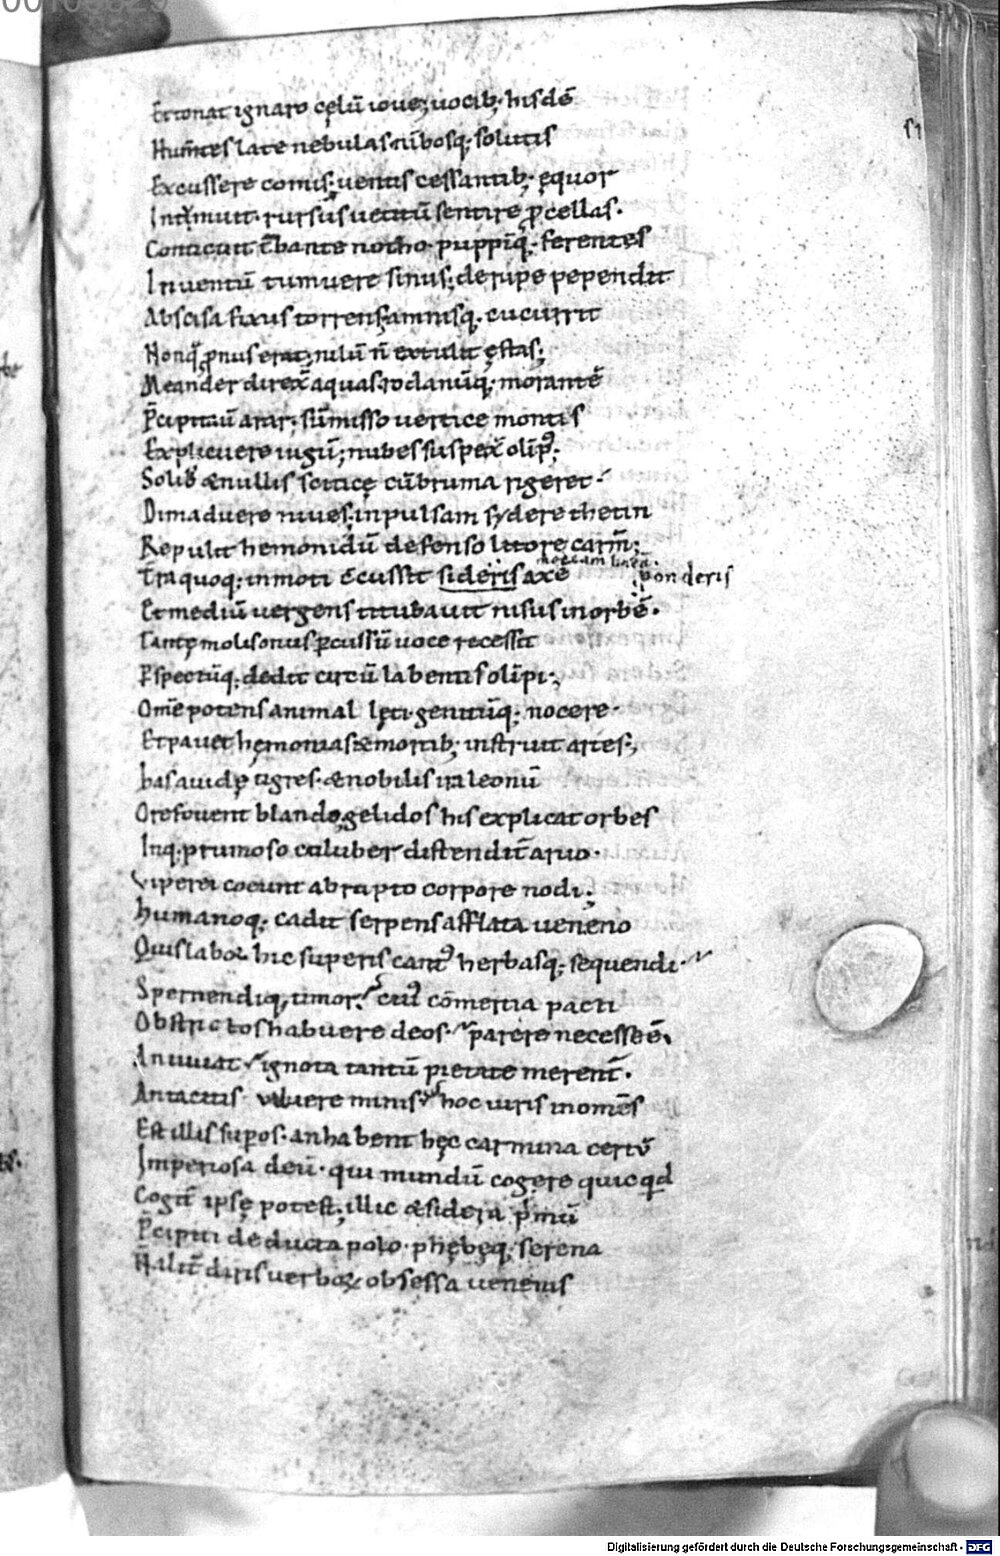 Et tonat ignaro cęlũ ioue; uocib; hisdẽ
Humẽtes late nebulas nĩbosq; solutis
Excussere comis; uentis cessantib; ęquor
Intũmuit. rursus uetitũ sentire ꝓcellas.
Conticuit t̃bante notho. puppĩq; ferentes
In uentũ tumuere sinus; de rupe pependit
Abscisa fixus torrens; amnisq. cucurrit
Nonq̃ ꝓnus erat; nilũ ñ extulit ęstas;
Meander direx̃ aquas rodanũq; morantẽ
P̃cipitauit arar; sũmisso uertice montis
Explicuere iugũ; nubes suspex̃ olĩpꝰ;
Solibꝰ & nullis sciticę cũ bruma rigeret.
Dimaduere niues; inpulsam sydere thetin
Repulit hemonidũ defenso litore carm̃;
T̃ra quoq; inmoti c̃cussit sideris axẽ
ponderis
Et mediũ uergens titubauit nisus in orbẽ.
Tantę molis onus ꝑcussũ uoce recessit
P̱spectũq; dedit circũ labentis olĩpi;
Om̃e potens animal lęti genitũq; nocere.
Et pauet hęmonias & mortib; instruit artes;
has auidę tigres. & nobilis ira leonũ
Ore fouent blando; gelidos his explicat orbes
Inq; pruinoso coluber distendit̃ aruo.
Viperei coeunt abrupto corpore nodi;
humanoq; cadit serpens afflata ueneno
Quis labor hic superis cant᷒ herbasq; sequendi.
Spernendiq, timor; cui᷒ cõmertia pacti
Obstrictos habuere deos. parere necesse ẽ.
An iuuat ignota tantũ pietate merent̃.
An tacitis ualuere minis hoc iuris in om̃es
Est illis suꝑos. an habent hęc carmina certũ
Imperiosa deũ. qui mundũ cogere quicq̃d
Cogit̃ ipse potest; illic & sidera p̃mũ
P̃cipiti deducta polo. phębęq; serena
N̄ alit̃ diris uerboꝝ obsessa uenenis
Digitalisierung gefördert durch die Deutsche Forschungsgemeinschaft - DFG